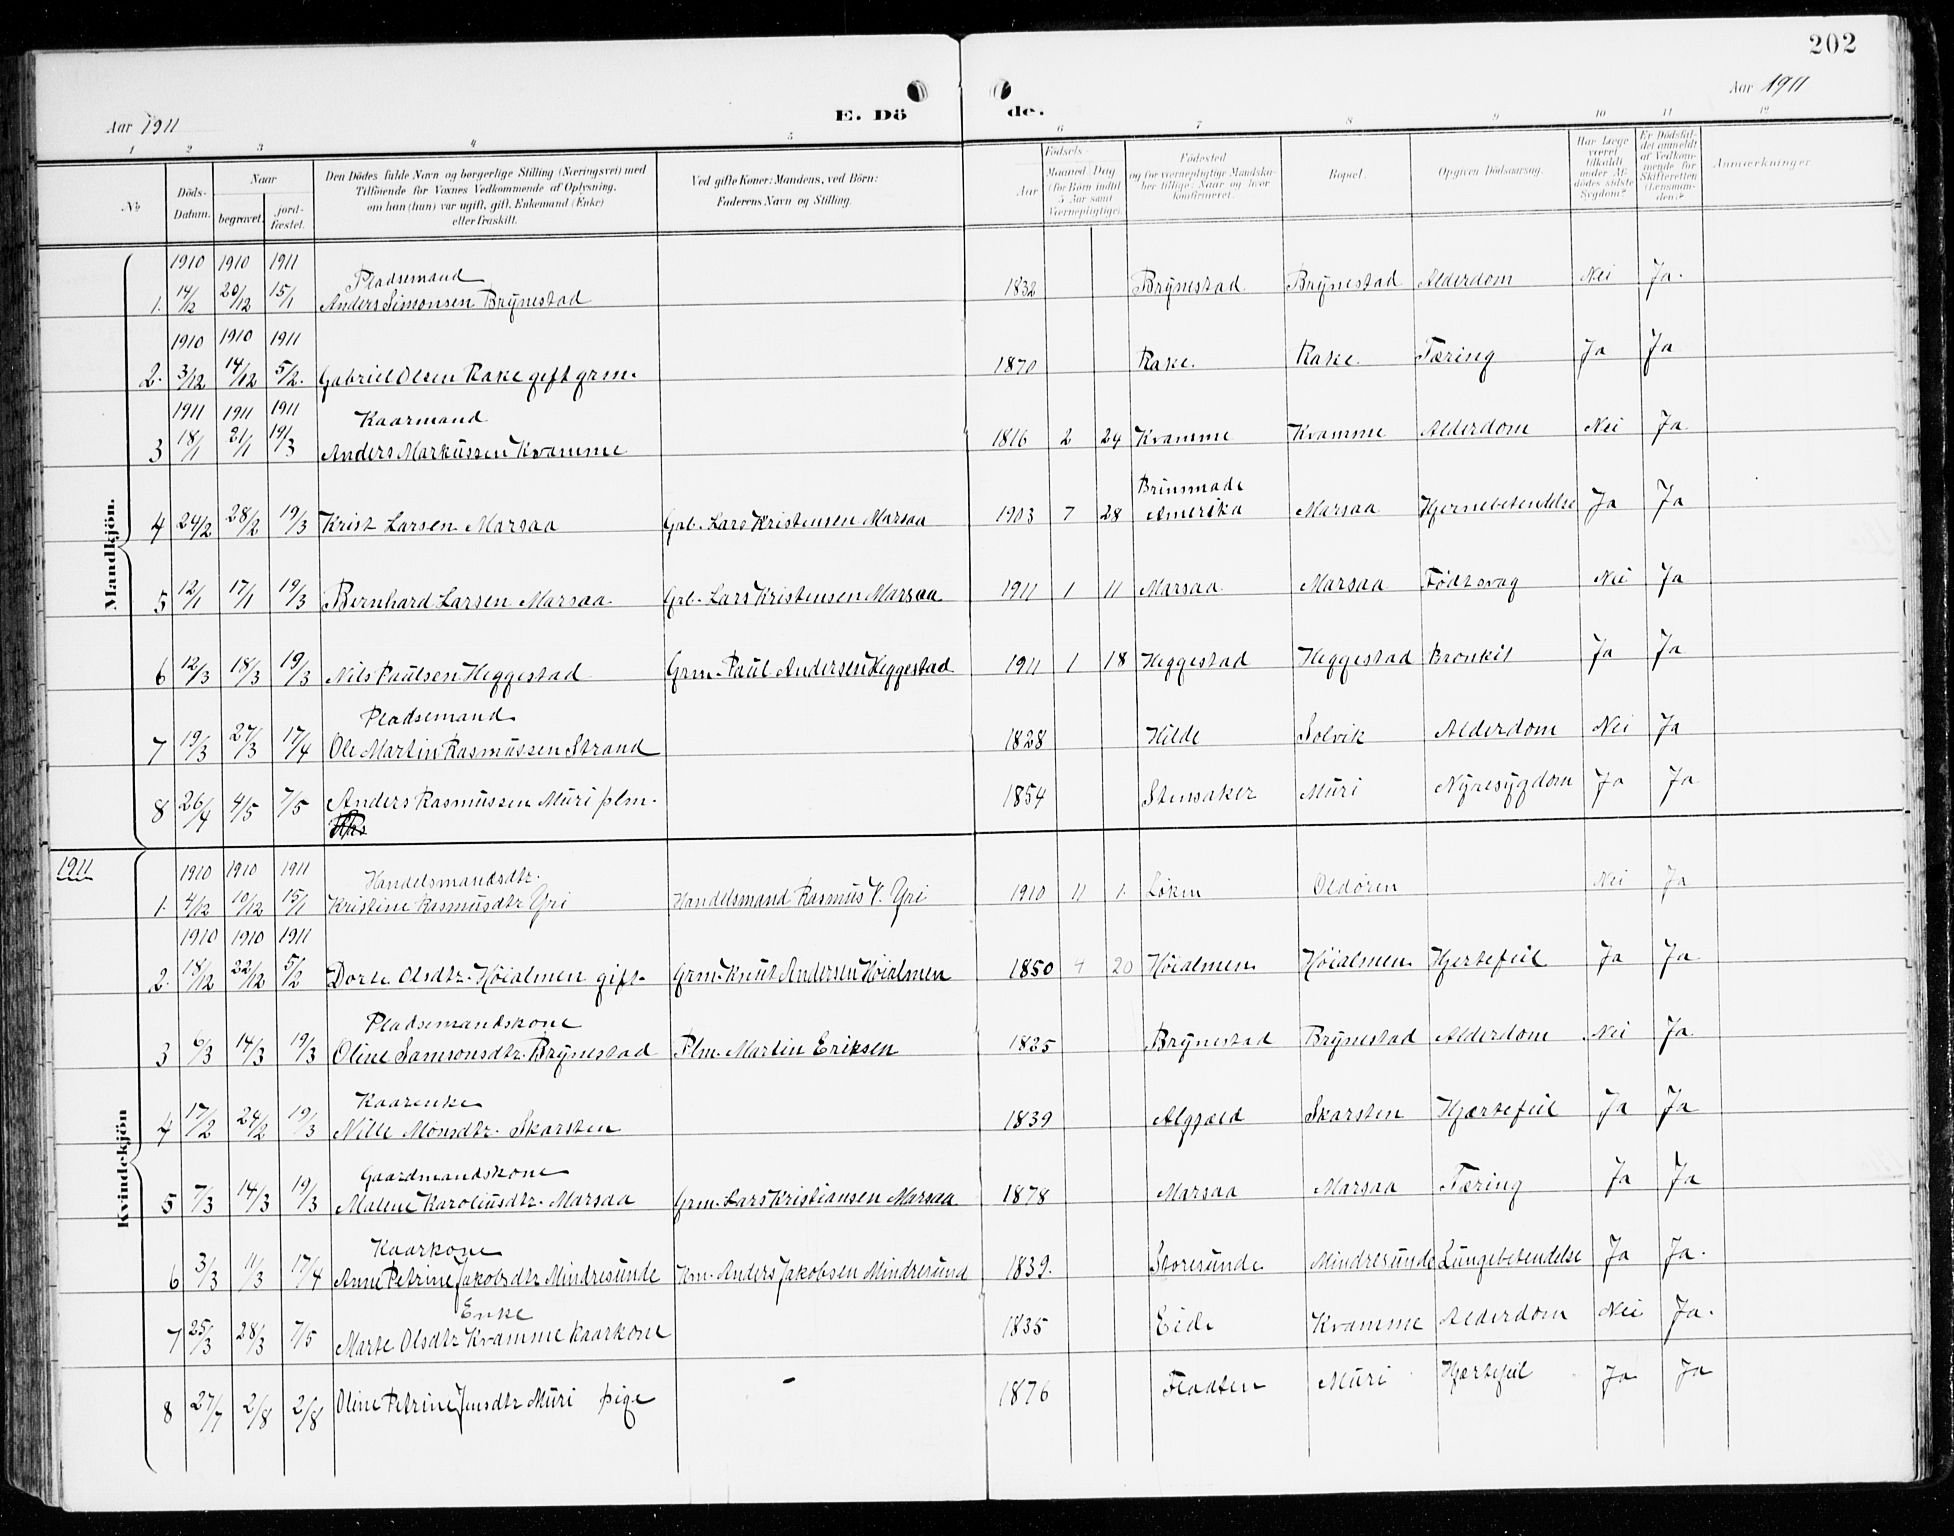 202
Aar 1911 E. Döde. Aar 1911
1 2 3 4 5 6 7 8 9 10 11 12
No Döds-Datum. Naar begravet. jord-fæstet. Den Dödes fulde Navn og borgerlige Stilling (Næringsvei) med Tilföiende for Voxnes Vedkommende af Oplysning, om han (hun) var ugift, gift, Enkemand (Enke) eller fraskilt. Ved gifte Koner: Mandens, ved Börn: Faderens Navn og Stilling. Födsels- Aar Maaned Dag (for Börn indtil 5 Aar samt Værnepligtige). Födested og for værnepligtige Mandskaber tillige: Naar og hvor konfirmeret. Bopæl. Opgiven Dödsaarsag. Har Læge været tilkaldt under Afdödes sidste Sygdom? Er Dödsfaldet anmeldt af Vedkommende for Skifteretten (Lensmanden)? Anmærkninger
Mandkjön.
1910 1910 1911 Pladsemand
1. 14/12 20/12 15/1 Anders Simonsen Brynestad 1832 Brynestad Brynestad Alderdom Nei Ja.
1910 1910 1911
2. 3/12 14/12 5/2. Gabriel Olsen Rake gift grm. 1870 Rake. Rake. Tæring Ja Ja
1911 1911 1911 Kaarmand
3 18/1 21/1 19/3 Anders Markussen Kvamme 1816 2 24 Kvamme Kvamme Alderdom Nei Ja
Brinsmade
4 24/2 28/2 19/3 Krist Larsen Marsaa Gab. Lars Kristensen Marsaa 1903 7 28 Amerika Marsaa Hjernebetendelse Ja Ja
5 12/1 17/1 19/3 Bernhard Larsen Marsaa Lars Kristensen Marsaa 1911 1 11 Marsaa Marsaa Födtsvag Nei Ja
6 12/3 18/3 19/3 Nils Paulsen Heggestad Grm. Paul Andersen Heggestad 1911 1 18 Heggestad Heggestad Bronkit Ja Ja
Pladsemand
7 19/3 27/3 17/4 Ole Martin Rasmussen Strand 1828 Hilde Solvik Alderdom Nei Ja
8 26/4 4/5 7/5 Anders Rasmussen Muri plm. 1854 Stensaker Muri Nyresygdom Ja Ja
1911
Kvindekjön
1910 1910 1911 Handelsmandsdtr.
1. 4/12 10/12 15/1 Kristine Rasmusdtr Yri Handelsmand Rasmus V. Yri 1910 11 1. Løken Oldøren Nei Ja
1910 1910 1911
2. 18/12 22/12 5/2 Dorte Olsdtr. Höialmen gift. Grm. Knut Andersen Höialmen 1850 4 20 Höialmen Höialmen Hjertefeil Ja Ja
Pladsemandskone
3 6/3 14/3 19/3 Oline Samsonsdtr. Brynestad Plm. Martin Eriksen 1825 Brynestad Brynestad Alderdom Nei Ja
Kaarenke
4 17/2 24/2 19/3 Nille Monsdtr. Skarsten 1839 Algjæld Skarsten Hjærtefeil Ja Ja
Gaardmandskone
5 7/3 14/3 19/3 Malene Karoliusdtr. Marsaa Grm. Lars Kristiansen Marsaa 1878 Marsaa Marsaa Tæring Ja Ja
Kaarkone
6 3/3 11/3 17/4 Anne Petrine Jakobsdtr Mindresunde Km. Anders Jakobsen Mindresund 1839. Storesunde Mindresunde Lungebetendelse Ja Ja.
Enke
7 25/3 28/3 7/5 Marte Olsdtr Kvamme kaarkone 1835 Eide Kvamme Alderdom Nei Ja.
8 27/7 2/8 2/8 Oline Petrine Jensdtr Muri pige - 1876 Flaaten Muri Hjærtefeil Ja Ja